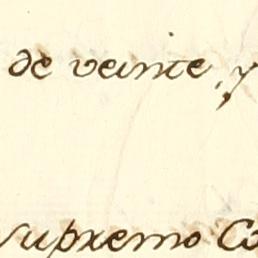 de veinte, y
Supremo Co